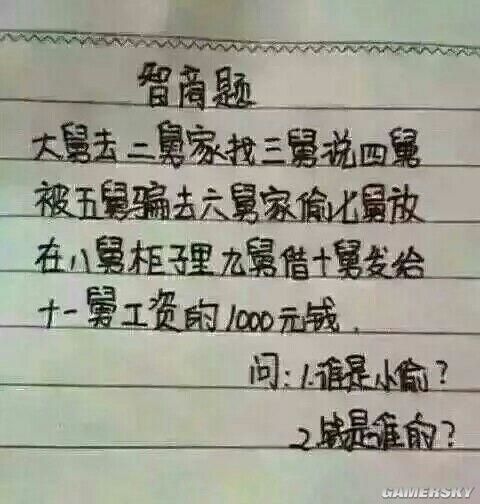 智商题
大舅去二舅家找三舅说四舅
被五舅骗去六舅家偷七舅放
在八舅柜子里九舅借十舅发给
十一舅工资的1000元钱.
问:1.谁是小偷?
2.钱是谁的?
GAMERSKY